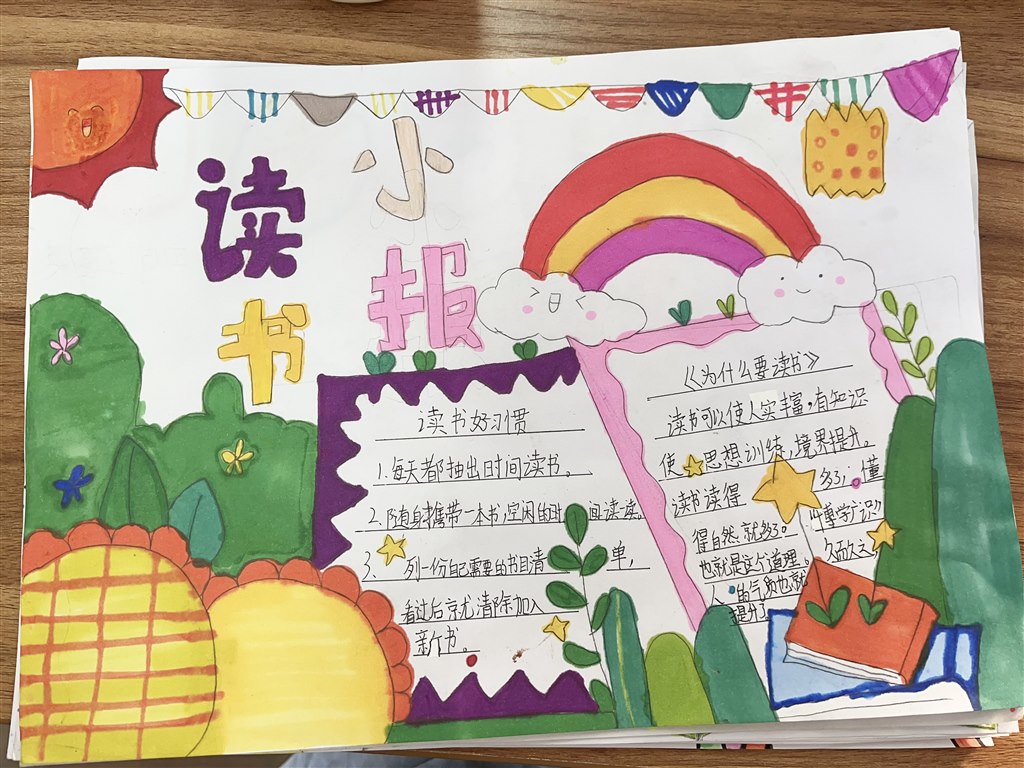 读书
小报
读书好习惯
1.每天都抽出时间读书。
2.随身携带一本书,空闲的时间读读。
3、列一份自己需要的书目清单,
看过后就清除加入
新书。
《为什么要读书》
读书可以使人充实丰富,有知识
使思想训练,境界提升。
读书读得多了;懂
得自然就多。
也就是这个道理。久而久之
人 由气质也就
提升了